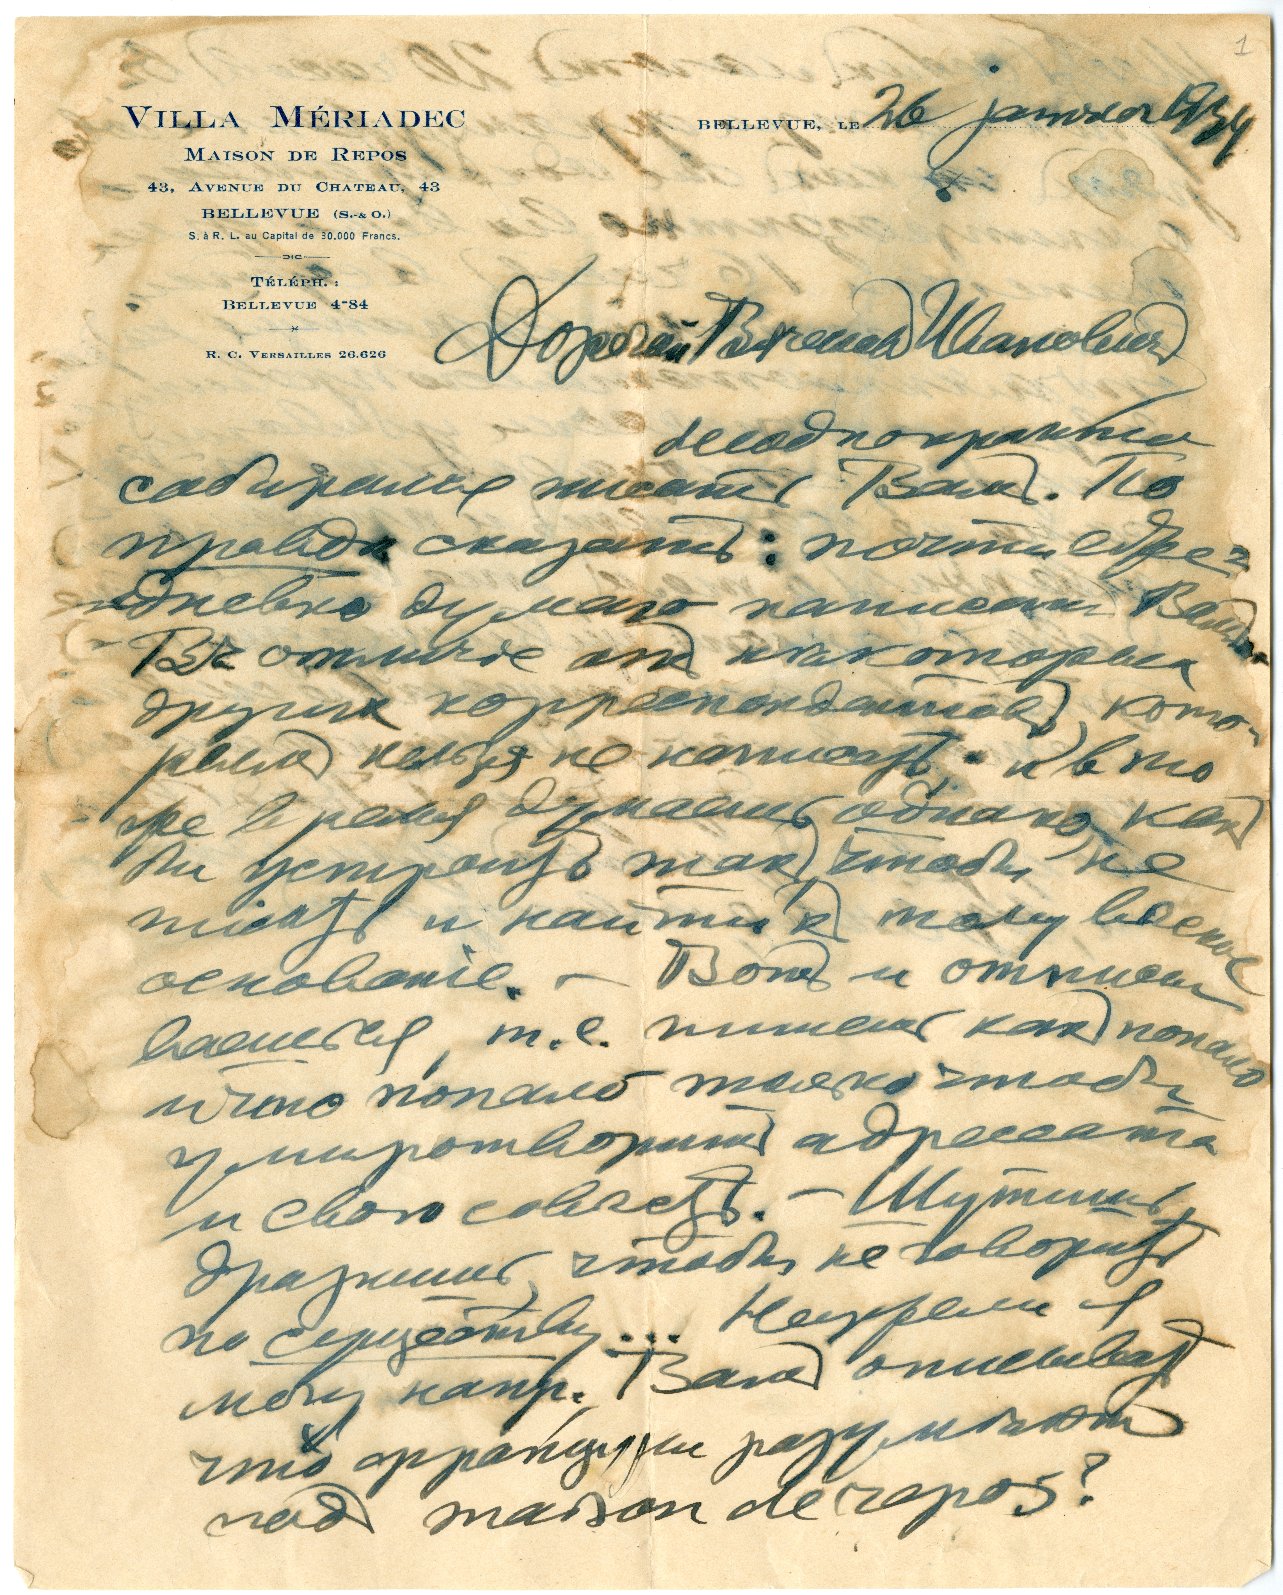 1
VILLA MÉRIADEC
MAISON DE REPOS
43, AVENUE DU CHATEAU, 43
BELLEVUE (S.-& O.)
S. à R. L. au Capital de 30.000 Francs.
TÉLÉPH. :
BELLEVUE 4-84
R. C. VERSAILLES 26.626
BELLEVUE, LE 26 janvier 1934
Дорогой Вячеслав Ивановичъ
неоднократно
собирался писать Вамъ. По
правдѣ сказать: почти еже-
дневно думаю написать Вамъ.
Въ отличіе отъ нѣкоторыхъ
другихъ корреспондентовъ, кото-
рымъ нельзя не написать, и въ то
же время думаешь однако, какъ
бы устроить такъ, чтобы не
писать и найти къ тому вѣское
основаніе. — Вотъ и отписы
ваешься, т.е. пишешь какъ попало
и что попало только чтобы
умиротворить адрессата
и свою совѣсть. — Шутишь,
дразнишь, чтобы не говорить
по существу... Неужели я
могу напр. Вамъ описывать
что французы разумѣютъ
подъ maison de repos?